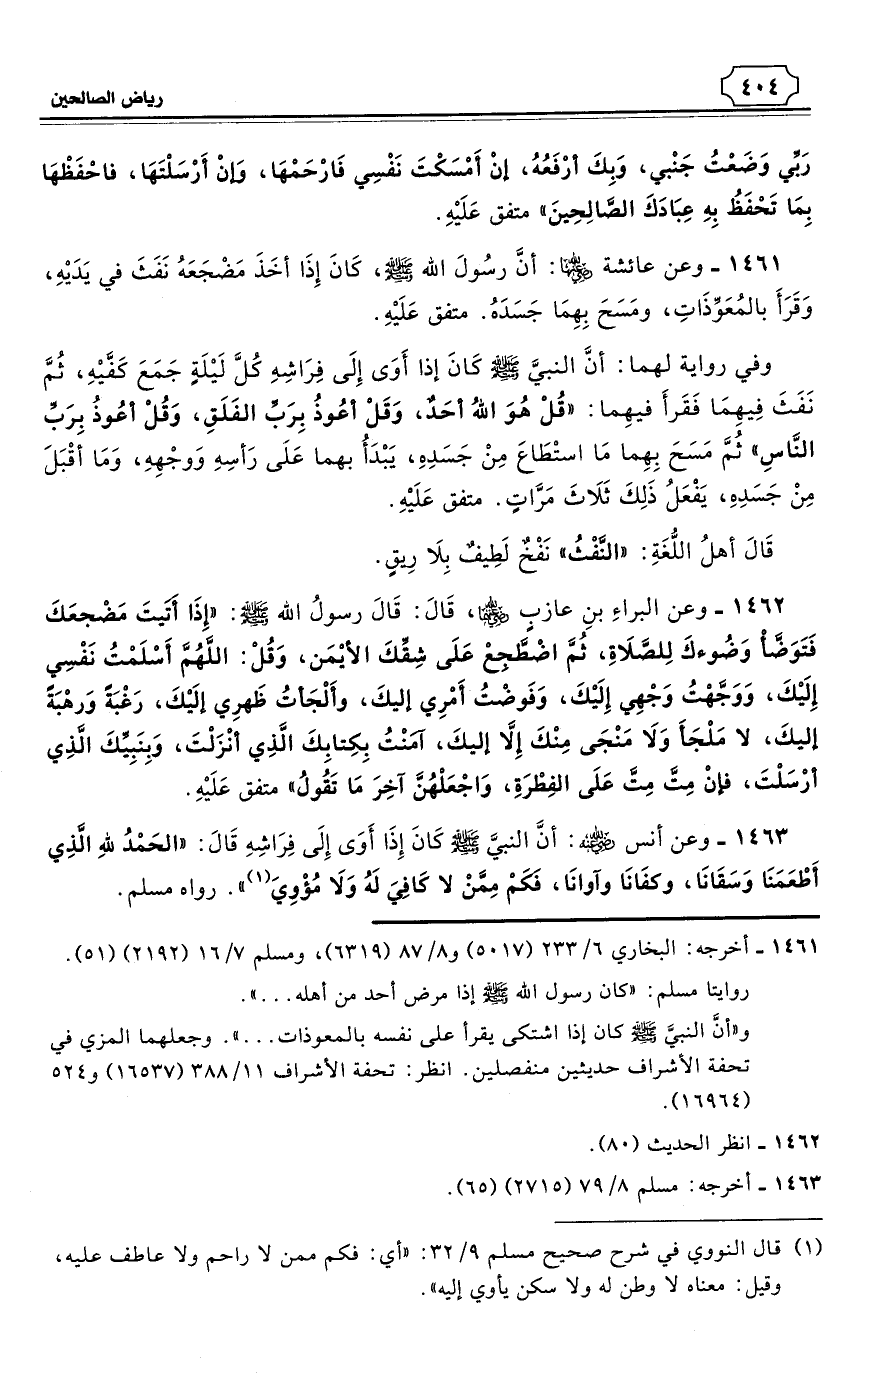 ٤٠٤
رياض الصالحين
رَبِّي وَضَعْتُ جَنْبي، وَبِكَ أرْفَعُهُ، إنْ أَمْسَكْتَ نَفْسِي فَارْحَمْهَا، وَإنْ أَرْسَلْتَهَا، فاحْفَظْهَا
بِمَا تَحْفَظُ بِهِ عِبَادَكَ الصَّالِحِينَ» متفق عَلَيْهِ.
١٤٦١ ـ وعن عائشة رضي الله عنها: أنَّ رسُولَ الله ﷺ، كَانَ إِذَا أخَذَ مَضْجَعَهُ نَفَثَ في يَدَيْهِ،
وَقَرَأَ بالمُعَوِّذَاتِ، ومَسَحَ بِهِمَا جَسَدَهُ. متفق عَلَيْهِ.
وفي رواية لهما: أنَّ النبيَّ ﷺ كَانَ إذا أَوَى إِلَى فِرَاشِهِ كُلَّ لَيْلَةٍ جَمَعَ كَفَّيْهِ، ثُمَّ
نَفَثَ فِيهِمَا فَقَرأَ فيهِما: «قُلْ هُوَ اللهُ أحَدٌ، وَقَلْ أعُوذُ بِرَبِّ الفَلَقِ، وَقُلْ أعُوذُ بِرَبِّ
النَّاسِ» ثُمَّ مَسَحَ بِهِما مَا استْطَاعَ مِنْ جَسَدِهِ، يَبْدَأُ بهما عَلَى رَأسِهِ وَوجْهِهِ، وَمَا أقْبَلَ
مِنْ جَسَدِهِ، يَفْعَلُ ذَلِكَ ثَلَاثَ مَرَّاتٍ. متفق عَلَيْهِ.
قَالَ أهلُ اللُّغَةِ: «النَّفْثُ» نَفْخٌ لَطِيفٌ بِلَا رِيقٍ.
١٤٦٢ ـ وعن البراءِ بنِ عازبٍ رضي الله عنهما، قَالَ: قَالَ رسولُ الله ﷺ: «إِذَا أَتَيتَ مَضْجعَكَ
فَتَوَضَّأْ وَضُوءكَ لِلصَّلَاةِ، ثُمَّ اضْطَجِعْ عَلَى شِقِّكَ الأيْمَن، وَقُلْ: اللَّهُمَّ أَسْلَمْتُ نَفْسِي
إِلَيْكَ، وَوَجَّهْتُ وَجْهِي إِلَيْكَ، وَفَوضْتُ أمْرِي إليكَ، وأَلْجَأتُ ظَهرِي إلَيْكَ، رَغْبَةً وَرهْبَةً
إليكَ، لا مَلْجَأَ وَلَا مَنْجَى مِنْكَ إِلَّا إليكَ، آمَنْتُ بِكِتابِكَ الَّذِي أنْزَلْتَ، وَبِنَبِيِّكَ الَّذِي
أرْسَلْتَ، فإنْ مِتَّ مِتَّ عَلَى الفِطْرَةِ، وَاجْعَلْهُنَّ آخِرَ مَا تَقُولُ» متفق عَلَيْهِ.
١٤٦٣ ـ وعن أنس رضي الله عنه: أنَّ النبيَّ ﷺ كَانَ إِذَا أَوَى إِلَى فِرَاشِهِ قَالَ: «الحَمْدُ للهِ الَّذِي
أَطْعَمَنَا وَسَقَانَا، وكفَانَا وآوانَا، فَكَمْ مِمَّنْ لا كَافِيَ لَهُ وَلَا مُؤْوِيَ(١)». رواه مسلم.
١٤٦١ ـ أخرجه: البخاري ٦/ ٢٣٣ (٥٠١٧) و٨/ ٨٧ (٦٣١٩)، ومسلم ٧/ ١٦ (٢١٩٢) (٥١).
روايتا مسلم: «كان رسول الله ﷺ إذا مرض أحد من أهله...».
و«أنَّ النبيَّ ﷺ كان إذا اشتكى يقرأ على نفسه بالمعوذات...». وجعلهما المزي في
تحفة الأشراف حديثين منفصلين. انظر: تحفة الأشراف ١١/ ٣٨٨ (١٦٥٣٧) و٥٢٤
(١٦٩٦٤).
١٤٦٢ ـ انظر الحديث (٨٠).
١٤٦٣ ـ أخرجه: مسلم ٨/ ٧٩ (٢٧١٥) (٦٥).
(١) قال النووي في شرح صحيح مسلم ٩/ ٣٢: «أي: فكم ممن لا راحم ولا عاطف عليه،
وقيل: معناه لا وطن له ولا سكن يأوي إليه».